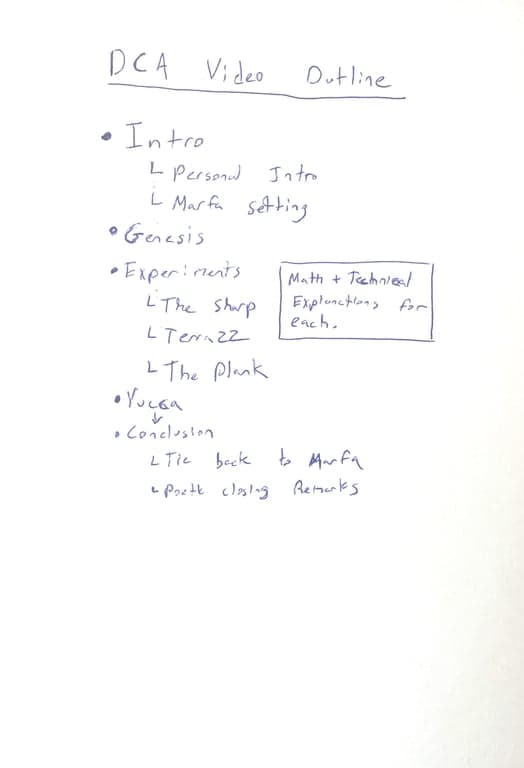 DCA Video Outline
• Intro
└ Personal Intro
└ Marfa setting
• Genesis
• Experiments
Math + Technical
Explanations for
each.
└ The Sharp
└ Terrazz
└ The Plank
• Yucca
↓
• Conclusion
└ Tie back to Marfa
└ Poetic closing Remarks